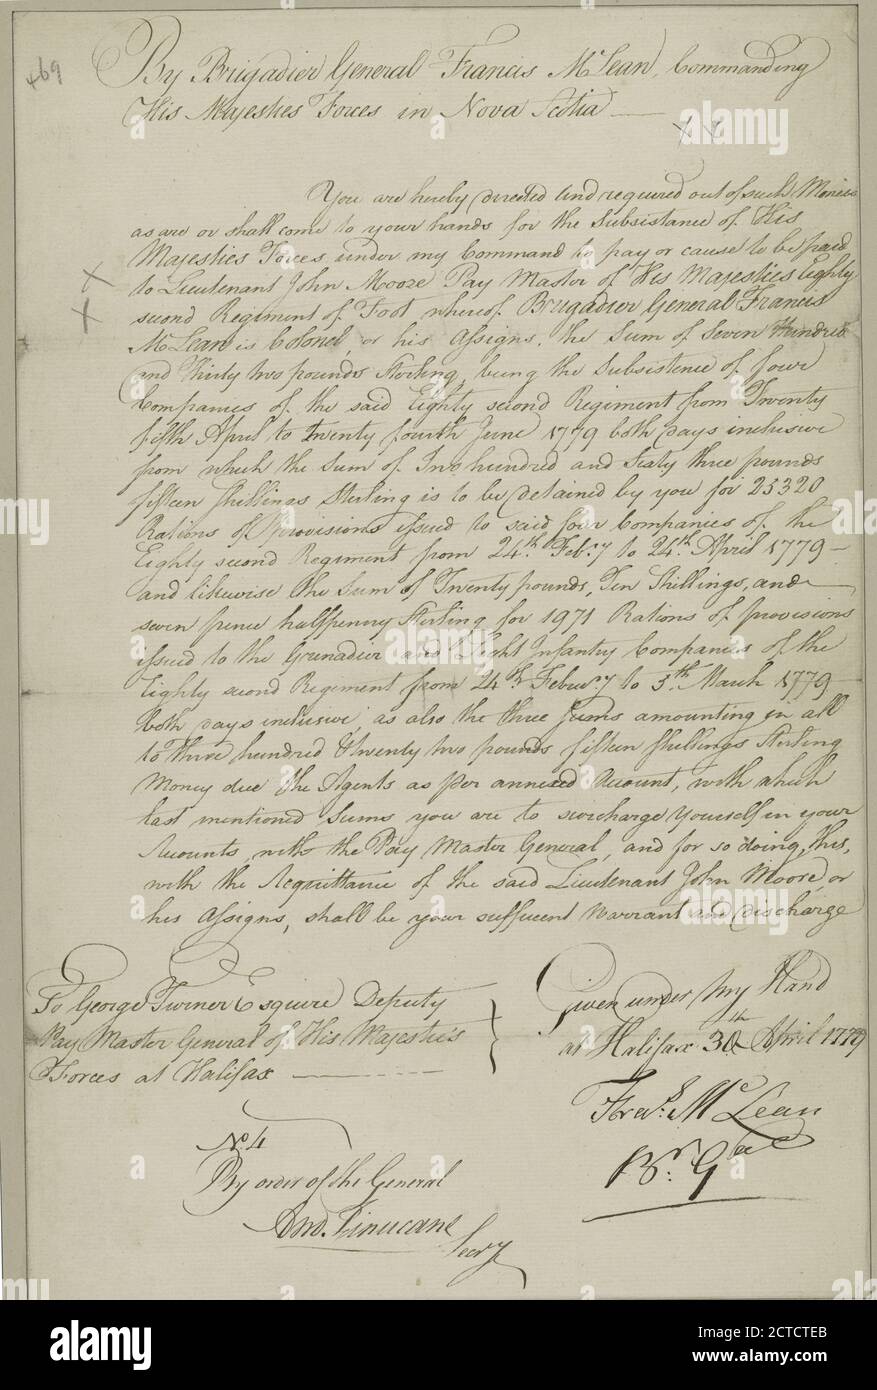 469
By Brigadier General Francis McLean, Commanding
His Majesties Forces in Nova Scotia
x x
You are hereby directed and required out of such Monies
as are or shall come to your hands for the Subsistance of His
Majesties Forces under my Command to pay or cause to be paid
x x
to Lieutenant John Moore Pay Master of His Majesties Eighty
second Regiment of Foot whereof Brigadier General Francis
McLean is Colonel, or his Assigns, the Sum of Seven Hundred
and Thirty two pounds Sterling, being the Subsistence of four
Companies of the said Eighty second Regiment from Twenty
fifth April to twenty fourth June 1779 both days inclusive
from which the Sum of Two hundred and Sixty three pounds
fifteen Shillings Sterling is to be detained by you for 25320
Rations of provisions issued to said four Companies of the
Eighty second Regiment from 24th Feb.y to 24th April 1779 —
and likewise the Sum of Twenty pounds, Ten Shillings, and
seven pence halfpenny Sterling for 1971 Rations of provisions
issued to the Grenadier and Light Infantry Companies of the
Eighty second Regiment from 24th Febru.y to 3th March 1779
both days inclusive, as also the three Sums amounting in all
to three hundred & twenty two pounds fifteen Shillings Sterling
Money due the Agents as per annexed Account, with which
last mentioned Sums you are to surcharge yourself in your
Accounts, with the Pay Master General, and for so doing, this,
with the Acquittance of the said Lieutenant John Moore, or
his Assigns, shall be your sufficient Warrant and discharge
Given under My Hand
at Halifax 30th April 1779
To George Turner Esquire Deputy
Pay Master General of His Majestie's
Forces at Halifax
Fra.s McLean
Br. Gral
No. 4
By order of the General
And. Finucane
Secry
alamy
Image ID: 2CTCTEB
www.alamy.com